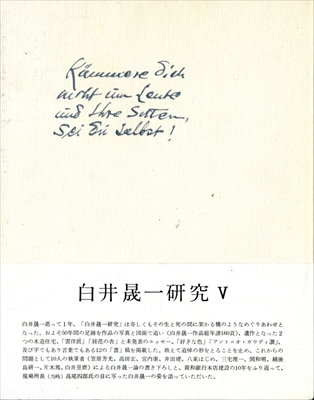 Kümmere Dich
nicht um Leute
und Ihre Sitten,
sei Du selbst!
白井晟一研究 V
白井晟一逝って1年,「白井晟一研究」は奇しくもその生と死の間に架かる橋のようなめぐりあわせと
なった。およそ50年間の足跡を作品の写真と図面で追い(白井晟一作品総年譜160頁),遺作となった2
つの木造住宅,「雲伴居」「桂花の舎」と未発表のエッセー,「好きな色」「アントニオ・ガウディ讃」,
及び字でもあり言葉でもある12の「書」稿を掲載した。敢えて追悼の形をとることを止め,これからの
問題として10人の執筆者(笠原芳光,高田宏,宮内康,井田建,八束はじめ,三宅理一,関和明,越後
島研一,片木篤,白井昱磨)による白井晟一論の書き下ろしと,親和銀行本店建設の10年をふり返って,
現場所長(当時)高尾四郎氏の目に写った白井晟一の姿を語っていただいた。